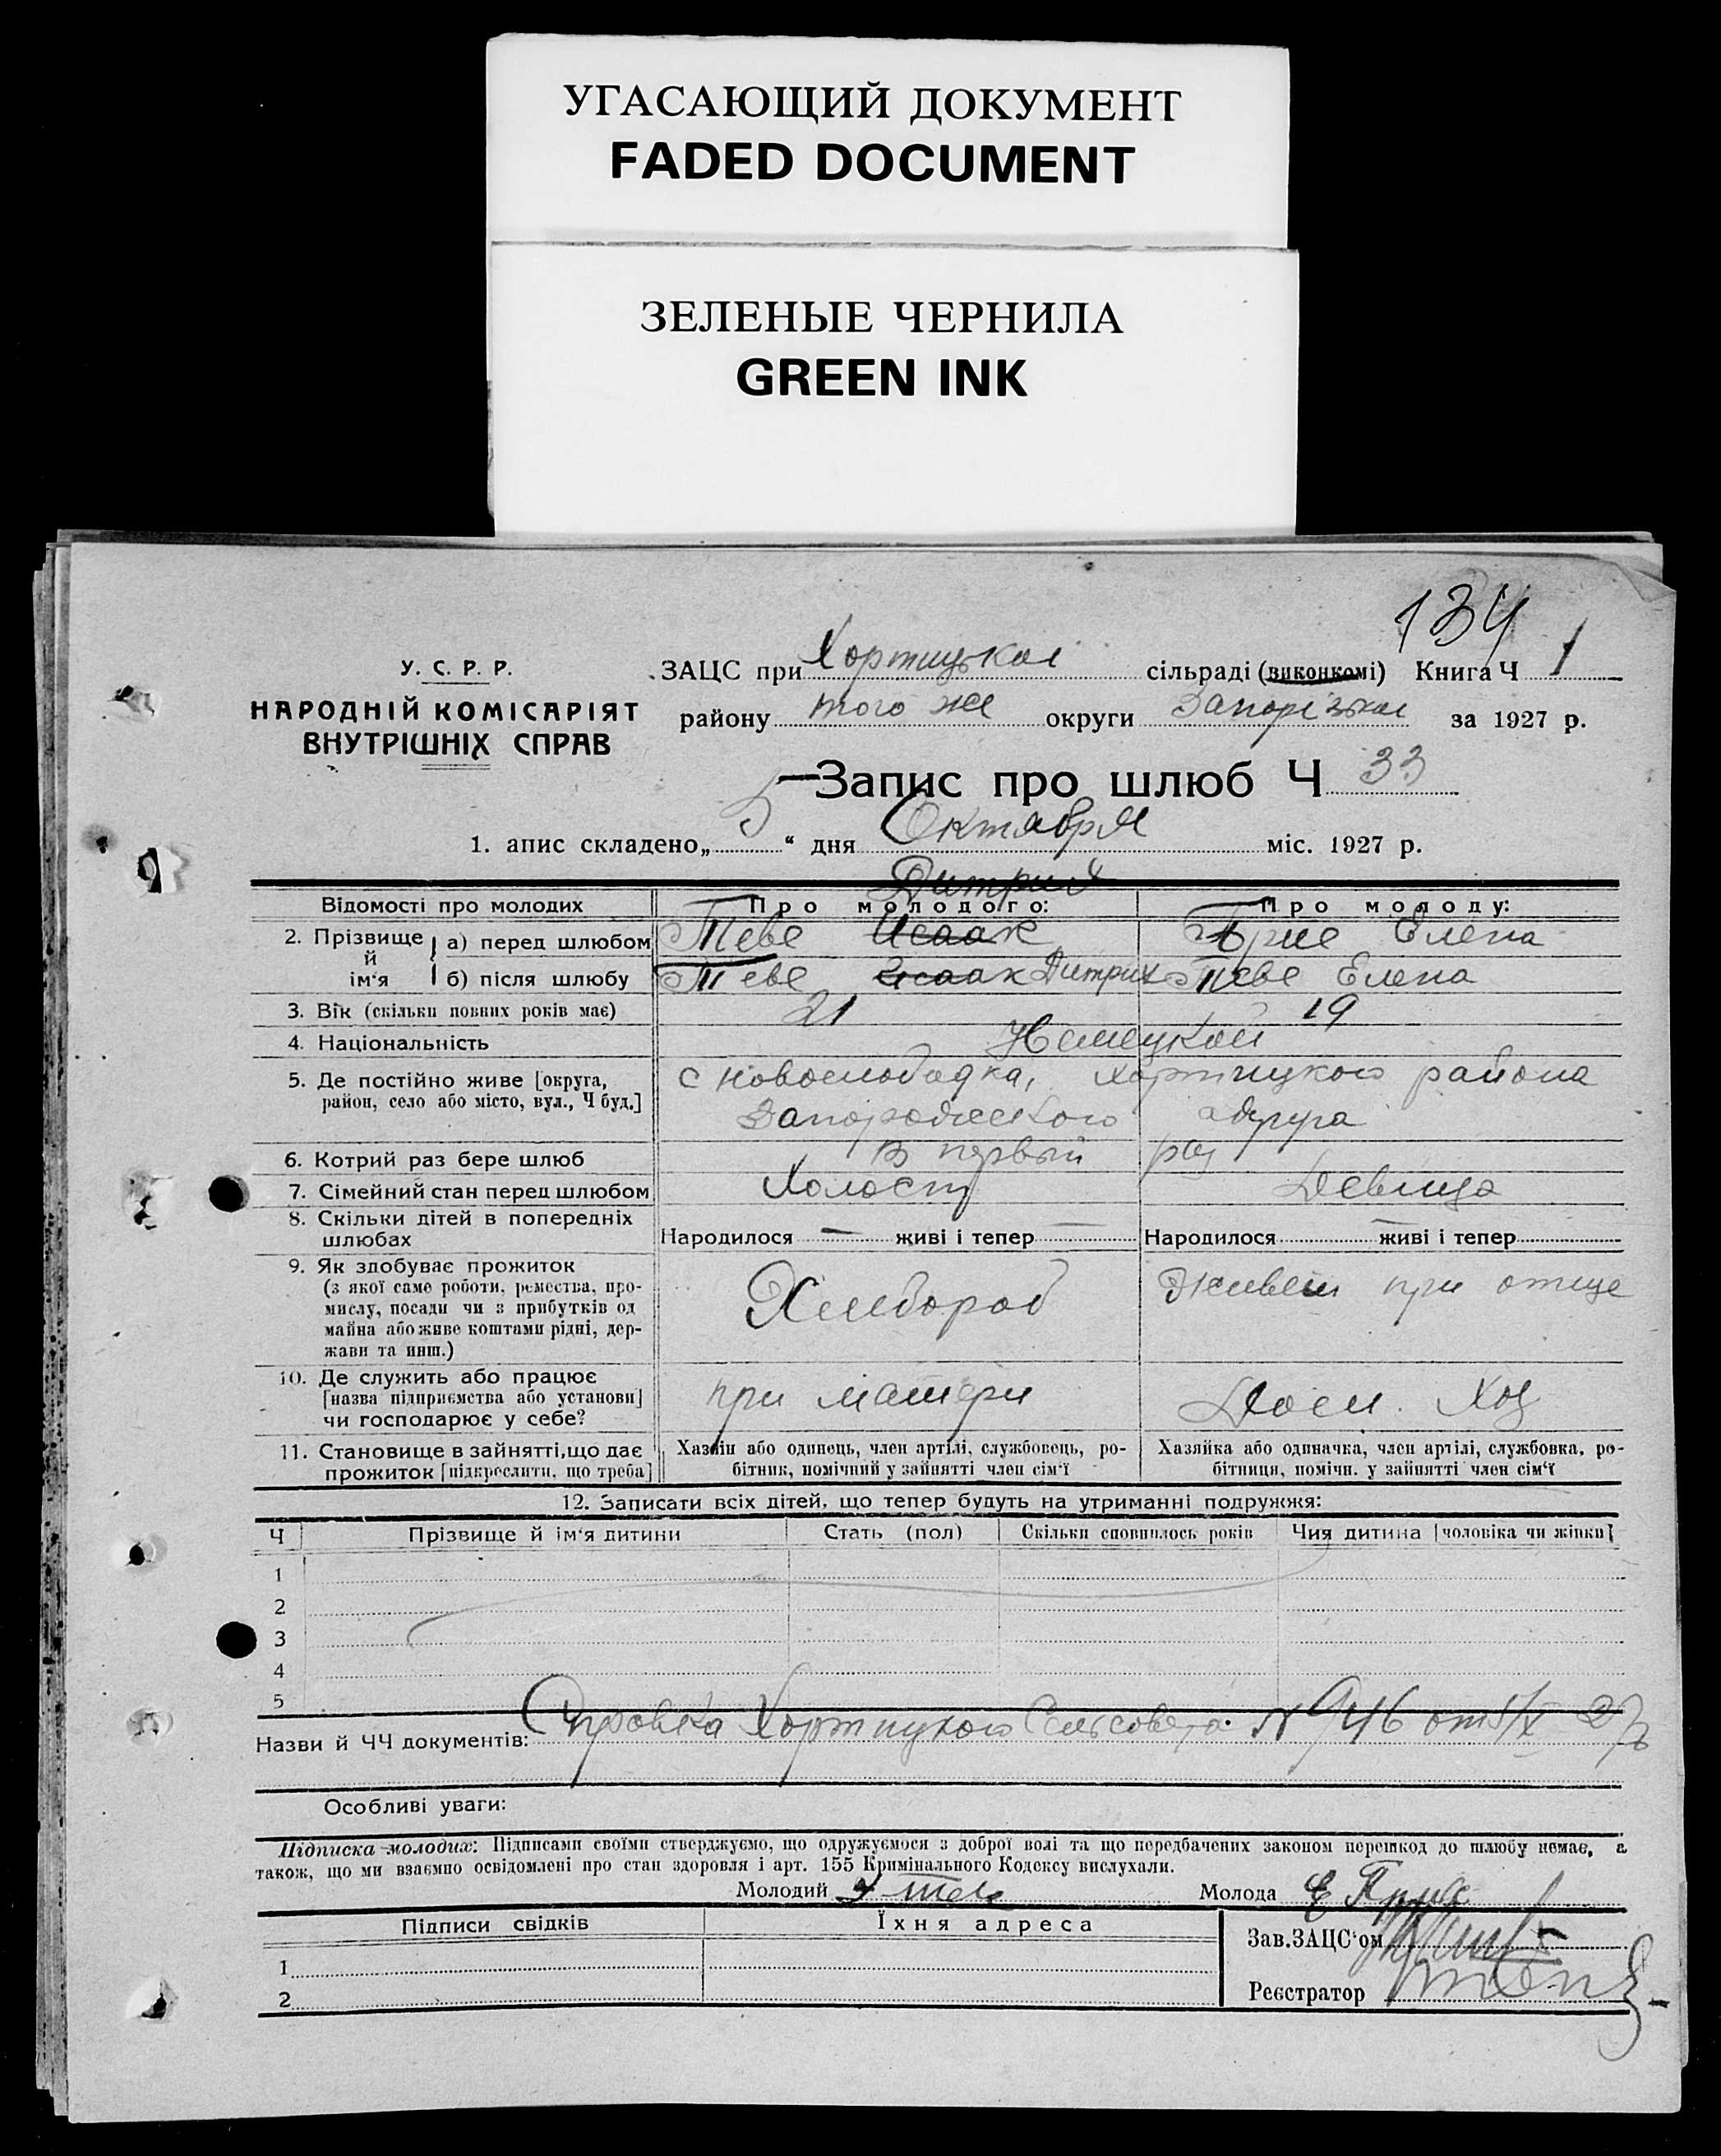 УГАСАЮЩИЙ ДОКУМЕНТ
FADED DOCUMENT
ЗЕЛЕНЫЕ ЧЕРНИЛА
GREEN INK
134
У. С. Р. Р.
НАРОДНІЙ КОМІСАРІЯТ
ВНУТРІШНІХ СПРАВ
ЗАЦС при Хортицькой сільраді (виконкомі) Книга Ч 1
району того же округи Запорізькой за 1927 р.
Запис про шлюб Ч 33
1. апис складено „ 5 “ дня Октября міс. 1927 р.
Дитрих
Відомості про молодих Про молодого: Про молоду:
2. Прізвище й ім‘я а) перед шлюбом Теве Исаак Елена
б) після шлюбу Теве Исаак Дитрих Теве Елена
3. Вік (скільки повних років має) 21 19
4. Національність Немецкой
5. Де постійно живе [округа, с Новослободка, Хортицкого района
район, село або місто, вул., Ч буд.] Запорожского округа
6. Котрий раз бере шлюб В первый раз
7. Сімейний стан перед шлюбом Холост Девица
8. Скільки дітей в попередніх
шлюбах Народилося — живі і тепер — Народилося — живі і тепер
9. Як здобуває прожиток
(з якої саме роботи, ремества, про-
мислу, посади чи з прибутків од
майна або живе коштами рідні, дер-
жави та инш.) Хлебороб Живет при отце
10. Де служить або працює
[назва підприємства або установи]
чи господарює у себе? при матери Дом. Хоз
11. Становище в зайнятті, що дає
прожиток [підкреслити, що треба]
Хазяїн або одинець, член артілі, службовець, ро-
бітник, помічний у зайнятті член сім‘ї
Хазяйка або одиначка, член артілі, службовка, ро-
бітниця, помічн. у зайнятті член сім‘ї
12. Записати всіх дітей, що тепер будуть на утриманні подружжя:
Ч Прізвище й ім‘я дитини Стать (пол) Скільки сповнилось років Чия дитина [чоловіка чи жінки]
1
2
3
4
5
Назви й ЧЧ документів: Справка Хортицкого Сельсовета № 946 от 5/X 27
Особливі уваги:
Підписка молодих: Підписами своїми стверджуємо, що одружуємося з доброї волі та що передбачених законом перешкод до шлюбу немає, а
також, що ми взаємно освідомлені про стан здоровля і арт. 155 Кримінального Кодексу вислухали.
Молодий Молода
Підписи свідків Їхня адреса
Зав. ЗАЦС‘ом
1
Реєстратор
2